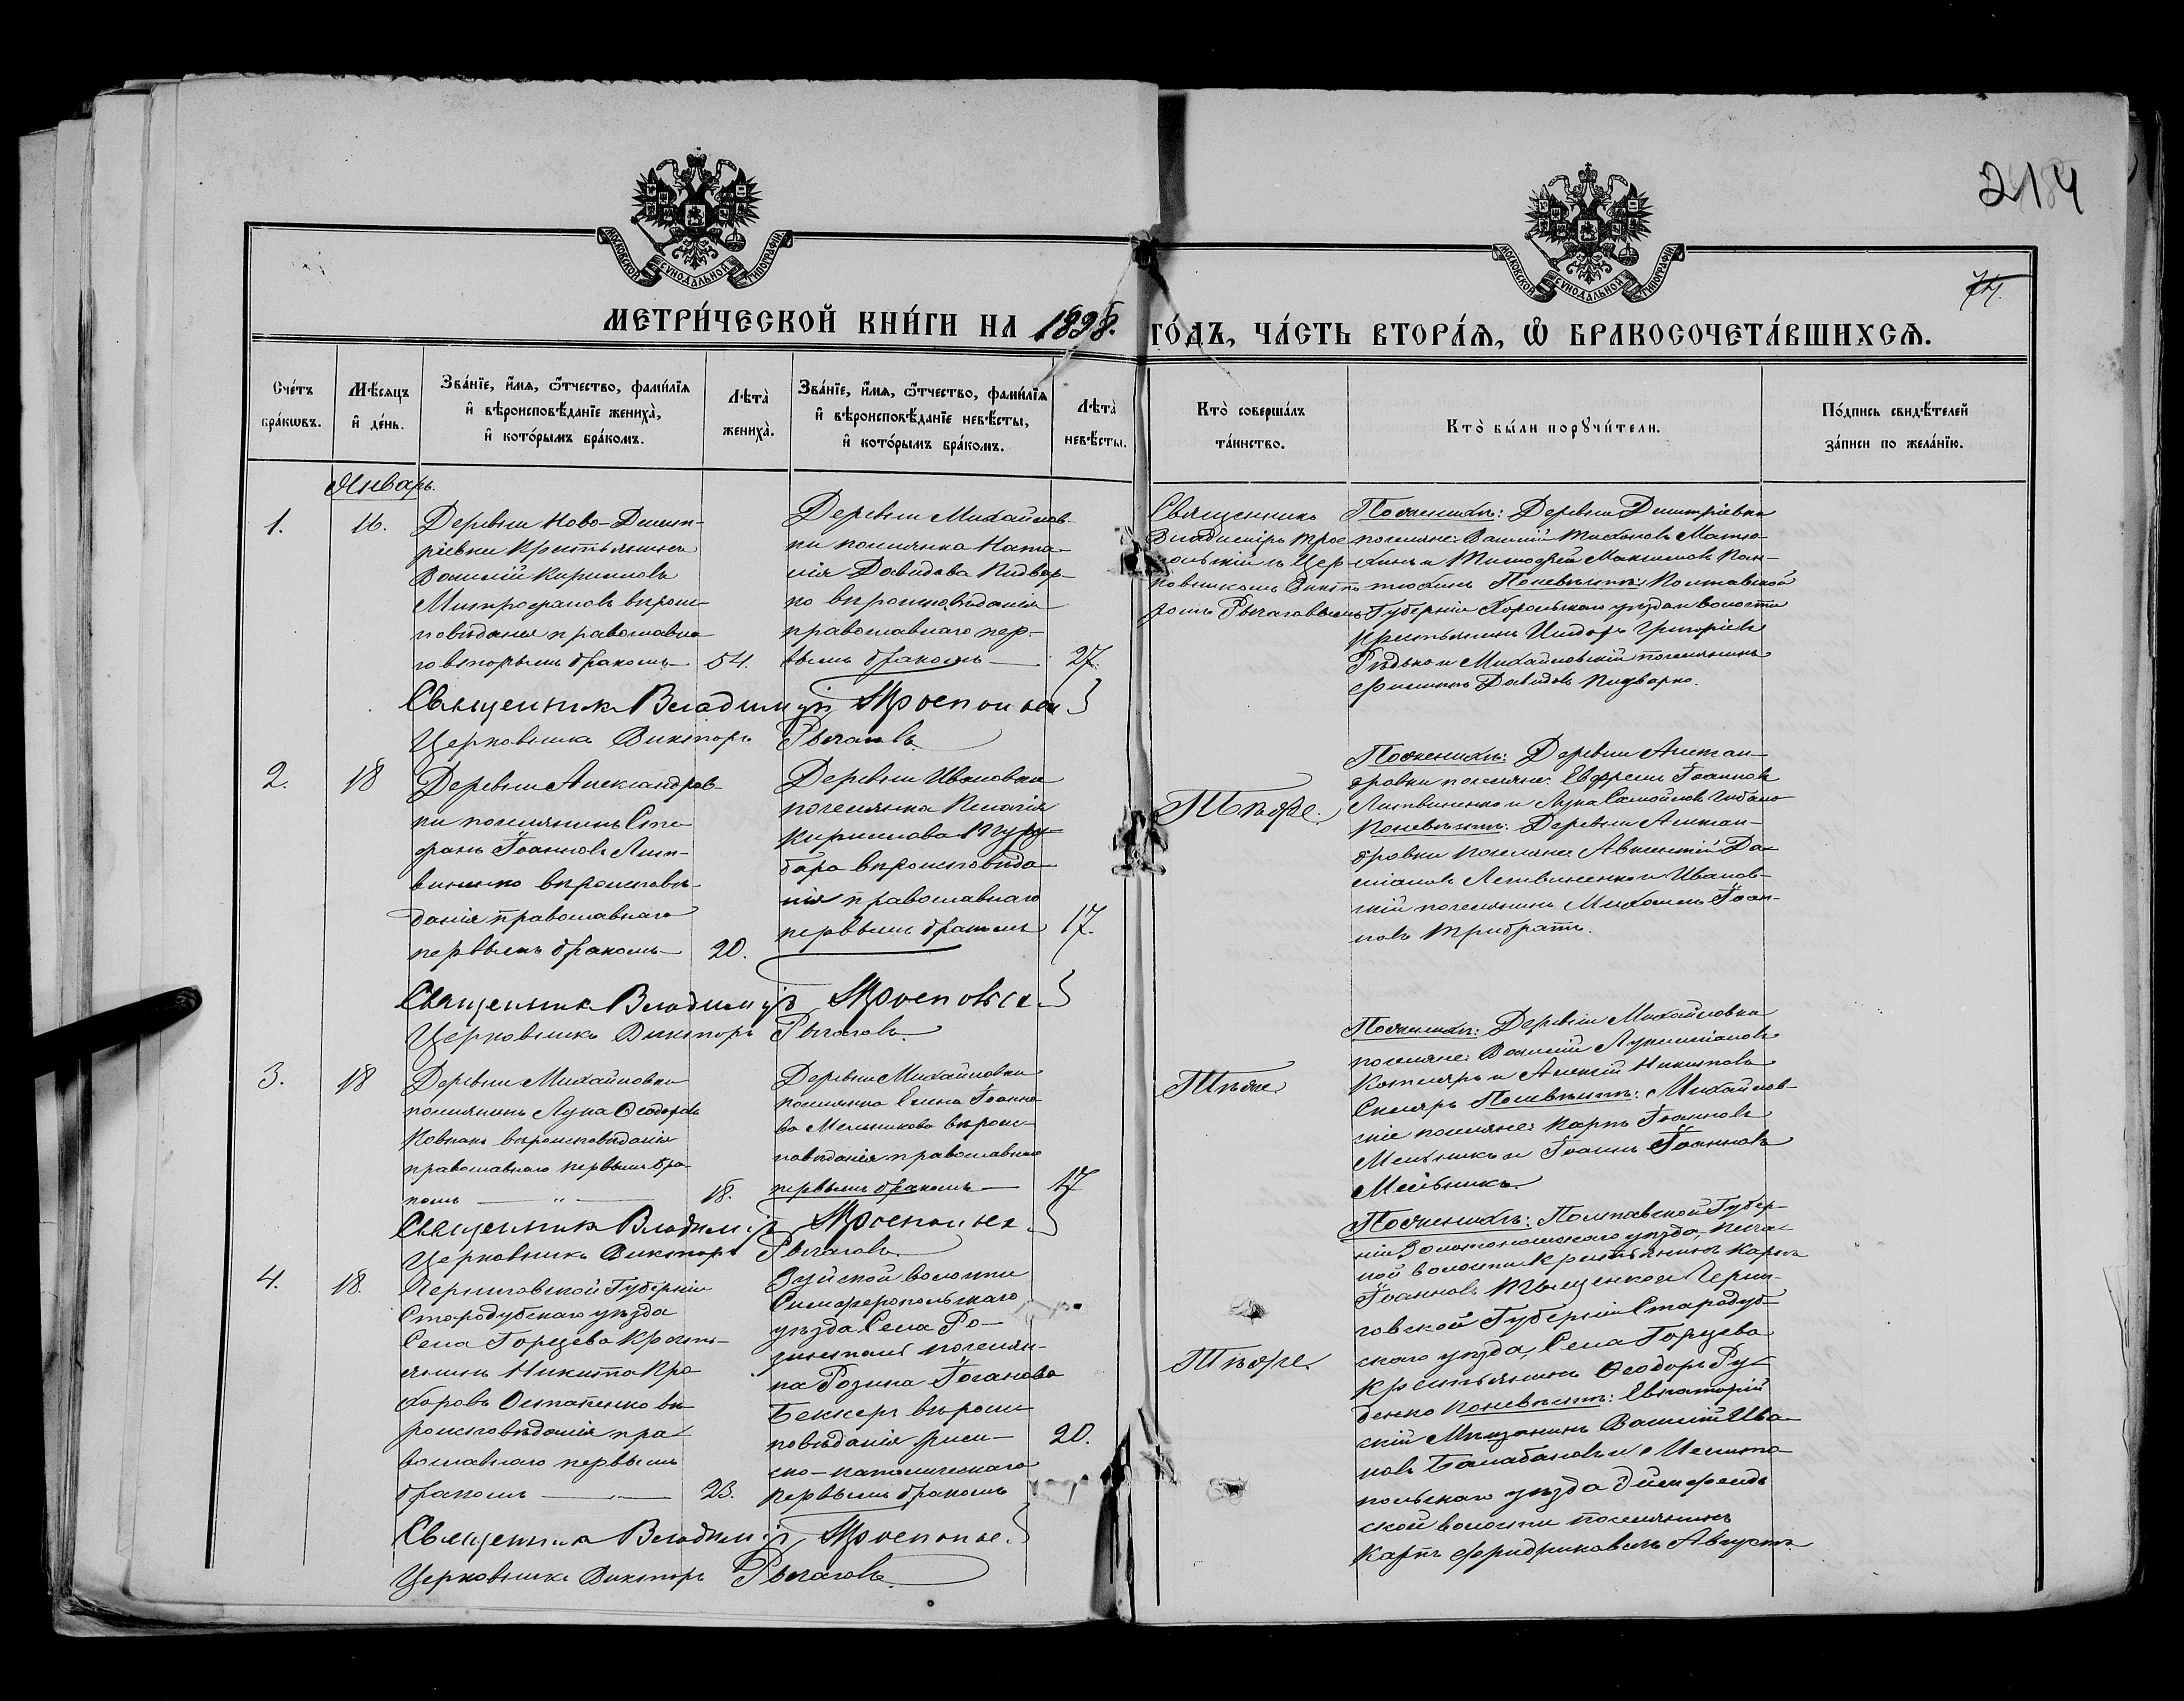 214
74.
МОСКОВСКОЙ СѴНОДАЛЬНОЙ ТИПОГРАФІИ
МОСКОВСКОЙ СѴНОДАЛЬНОЙ ТИПОГРАФІИ
МЕТРИ́ЧЕСКОЙ КНИ́ГИ НА 1898. ГО́ДЪ, ЧА́СТЬ ВТОРА́Я, Ѽ БРАКОСОЧЕТА́ВШИХСЯ.
Сче́тъ бра́кѡвъ.
Мѣ́сяцъ и҆ де́нь.
Зва́нїе, и҆́мя, ѻ҆́тчество, фами́лїя и҆ вѣроисповѣ́данїе жениха̀, и҆ кото́рымъ бра́комъ.
Лѣта̀ жениха̀.
Зва́нїе, и҆́мя, ѻ҆́тчество, фами́лїя и҆ вѣроисповѣ́данїе невѣ́сты, и҆ кото́рымъ бра́комъ.
Лѣта̀ невѣ́сты.
Кто̀ соверша́лъ та́инство.
Кто̀ бы́ли порꙋчи́тели.
По́дпись свидѣ́телей за́писи по жела́нїю.
Январь.
1.
16.
Деревни Ново-Димит-
ріевки Крестьянинъ
Василій Кирилловъ
Митрофановъ вѣроис-
повѣданія православна-
го вторымъ бракомъ
54.
Деревни Михайлов-
ки поселянка Ната-
лія Давидова Кидвор-
ко вѣроисповѣданія
православнаго пер-
вымъ бракомъ
27.
Священникъ
Владиміръ Трое-
польскій съ Цер-
ковникомъ Викто-
ромъ Рычаговымъ
По женихѣ: Деревни Димитріевки
поселяне: Василій Тихоновъ
и Тимофей Максимовъ Пан-
По невѣстѣ: Полтавской
Губерніи Хорольскаго уѣзда и волости
Крестьянинъ Исидоръ Григорьевъ
Рѣдько и Михайловскій поселянинъ
Филиппъ Давидовъ Кидворко.
Священникъ Владиміръ Троепольскій
Церковникъ Викторъ Рычаговъ
2.
18
Деревни Александров-
ки поселянинъ Сте-
фанъ Іоанновъ Лит-
виненко вѣроисповѣ-
данія православнаго
первымъ бракомъ
20.
Деревни Ивановки
поселянка Пелагія
Кириллова
вѣроисповѣда-
нія православнаго
первымъ бракомъ
17.
Тѣже.
По женихѣ: Деревни Алексан-
дровки поселяне: Ефремъ Іоанновъ
Литвиненко и Лука Самойловъ
По невѣстѣ: Деревни Алексан-
дровки поселяне Авксентій Да-
міановъ Литвиненко и Иванов-
скій поселянинъ Михаилъ Іоан-
новъ Трибратъ.
Священникъ Владиміръ Троепольскій
Церковникъ Викторъ Рычаговъ.
3.
18
Деревни Михайловки
поселянинъ Лука Ѳеодоровъ
Ковпакъ вѣроисповѣданія
православнаго первымъ бра-
комъ
18.
Деревни Михайловки
поселянка Елена Іоанно-
ва Мельникова вѣроис-
повѣданія православнаго
первымъ бракомъ
17
Тѣже
По женихѣ: Деревни Михайловки
поселяне: Василій Лукинъ
Котляръ и Алексій Никитовъ
Скляръ По невѣстѣ: Михайлов-
скіе поселяне: Карпъ Іоанновъ
Мельникъ и Іоаннъ Іоанновъ
Мельникъ.
Священникъ Владиміръ Троепольскій
Церковникъ Викторъ Рычаговъ
4.
18.
Черниговской Губерніи
Стародубскаго уѣзда
Села Горцева Кресть-
янинъ Никита Про-
хоровъ Остапенко вѣ-
роисповѣданія пра-
вославнаго первымъ
бракомъ
23.
Зуйской волости
Симферопольскаго
уѣзда Села Ро-
зенталь поселян-
ка Розина Іоганова
Беккеръ вѣроис-
повѣданія рим-
ско-католическаго
первымъ бракомъ
20.
Тѣже
По женихѣ: Полтавской Губер-
ніи Золотоношскаго уѣзда,
волости Крестьянинъ Карпъ
Іоанновъ и Черни-
говской Губерніи Стародуб-
скаго уѣзда, Села Горцева
Крестьянинъ Ѳеодоръ Ру-
денко По невѣстѣ: Евпаторій-
скій Мѣщанинъ Василій Ива-
новъ Балабановъ и Мелито-
польскаго уѣзда Эйгенфельд-
ской волости поселянинъ
Карлъ Фридриховъ Августъ
Священникъ Владиміръ Троепольскій
Церковникъ Викторъ Рычаговъ.